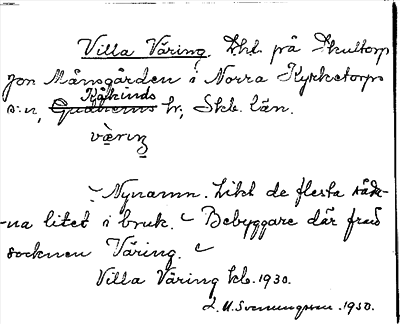 Villa Väring. Lht. på Skultorp
från Månsgården i Norra Kyrketorps
s:n, Kåkinds Gudhems hr, Skb. län.
vä̀rıŋ
– Nynamn. Likt de flesta såda-
-na litet i bruk. – Bebyggare där från
socknen Väring. –
Villa Väring kb. 1930.
L. M. Svenungsson. 1950.